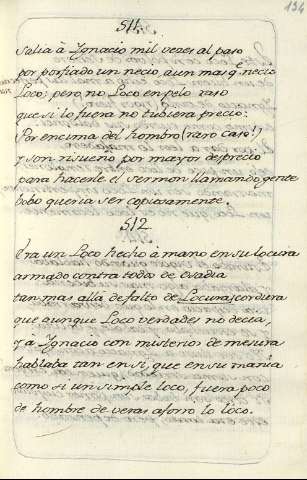 511
194
Salia à Ignacio mil vezes al paso
por porfiado un necio, aun mas q̃ necio
Loco; pero no Loco en pelo raso
que si lo fuera no tubiera precio:
Por encima del hombro (raro caso!)
y son risueño por mayor desprecio
para hacerle el sermon llamando gente
bobo queria ser copiosamente.
512
Era un Loco hecho à mano en su locura
armado contra toda de osadia
tan mas allà de falto de Locura cordura
que aunque Loco verdades no decia,
y à Ignacio con misterios de mesura
hablaba tan en si, que en su mania
como si un simple loco, fuera poco
de hombre de veras aforro lo loco.